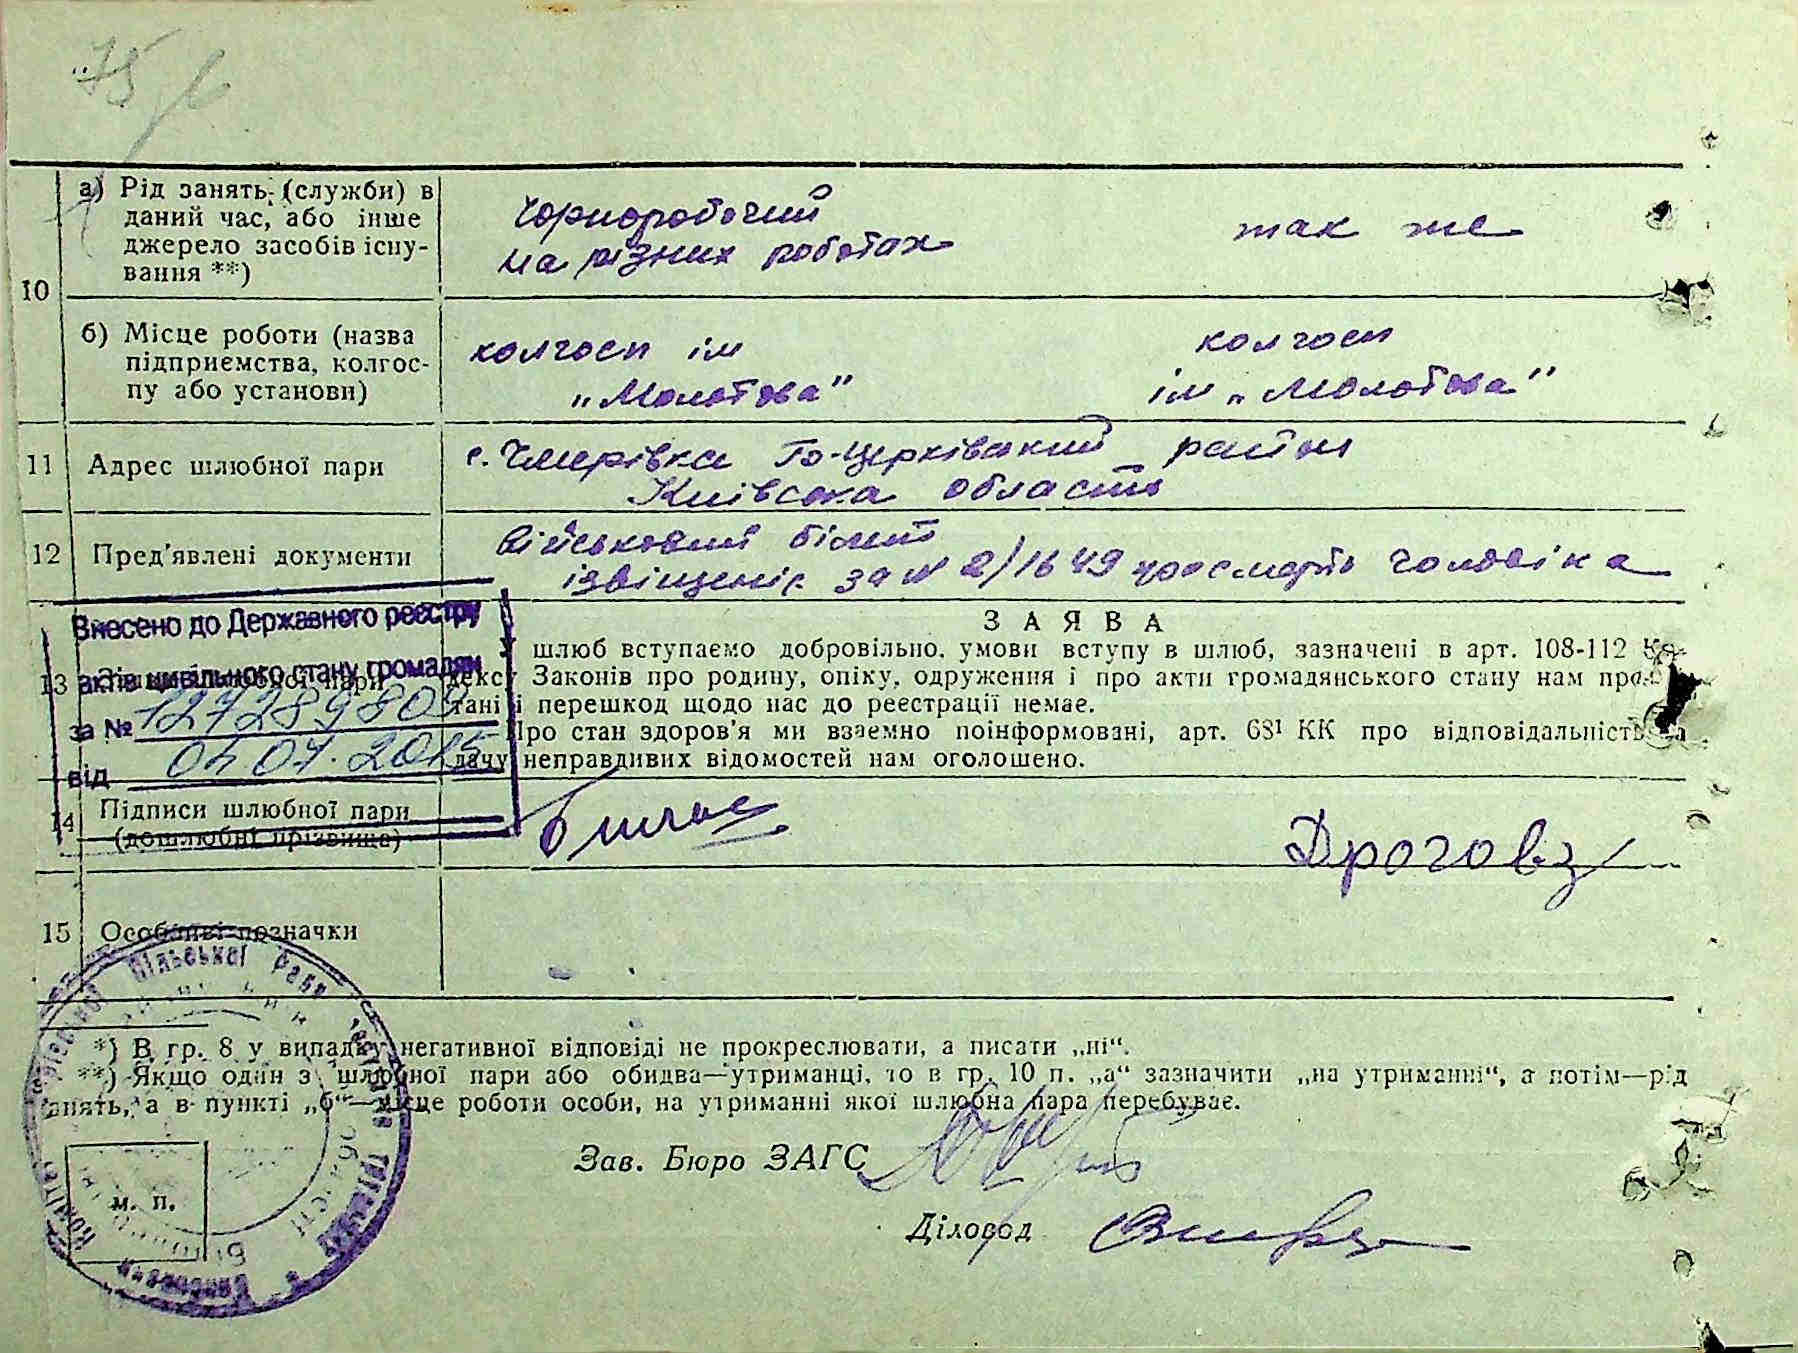 75
10
а) Рід занять, (служби) в
даний час, або інше
джерело засобів існу-
вання **)
Чорноробочий
на різних роботах
так же
б) Місце роботи (назва
підприємства, колгос-
пу або установи)
колгосп ім
„Молотова"
колгосп
ім „Молотова"
11
Адрес шлюбної пари
с. Чмирівка Б-Церківський район
Київська область
12
Пред'явлені документи
військовий білет
ізвіщеніє за № 2/1649 про смерть чоловіка
Внесено до Державного реєстру
актів цивільного стану громадян
за № 12728980
від 04 07. 2015
13
шлюбної пари
ЗАЯВА
У шлюб вступаємо добровільно, умови вступу в шлюб, зазначені в арт. 108-112 Ко-
дексу Законів про родину, опіку, одруження і про акти громадянського стану нам
і перешкод щодо нас до реєстрації немає.
Про стан здоров'я ми взаємно поінформовані, арт. 68¹ КК про відповідальність за
дачу неправдивих відомостей нам оголошено.
14
Підписи шлюбної пари
(дошлюбні прізвища)
15
Особливі позначки
*) В гр. 8 у випадку негативної відповіді не прокреслювати, а писати „ні".
**) Якщо один з шлюбної пари або обидва—утриманці, то в гр. 10 п. „а" зазначити „на утриманні", а потім—рід
занять, а в пункті „б"—місце роботи особи, на утриманні якої шлюбна пара перебуває.
Зав. Бюро ЗАГС
Діловод
м. п.
сільської Ради